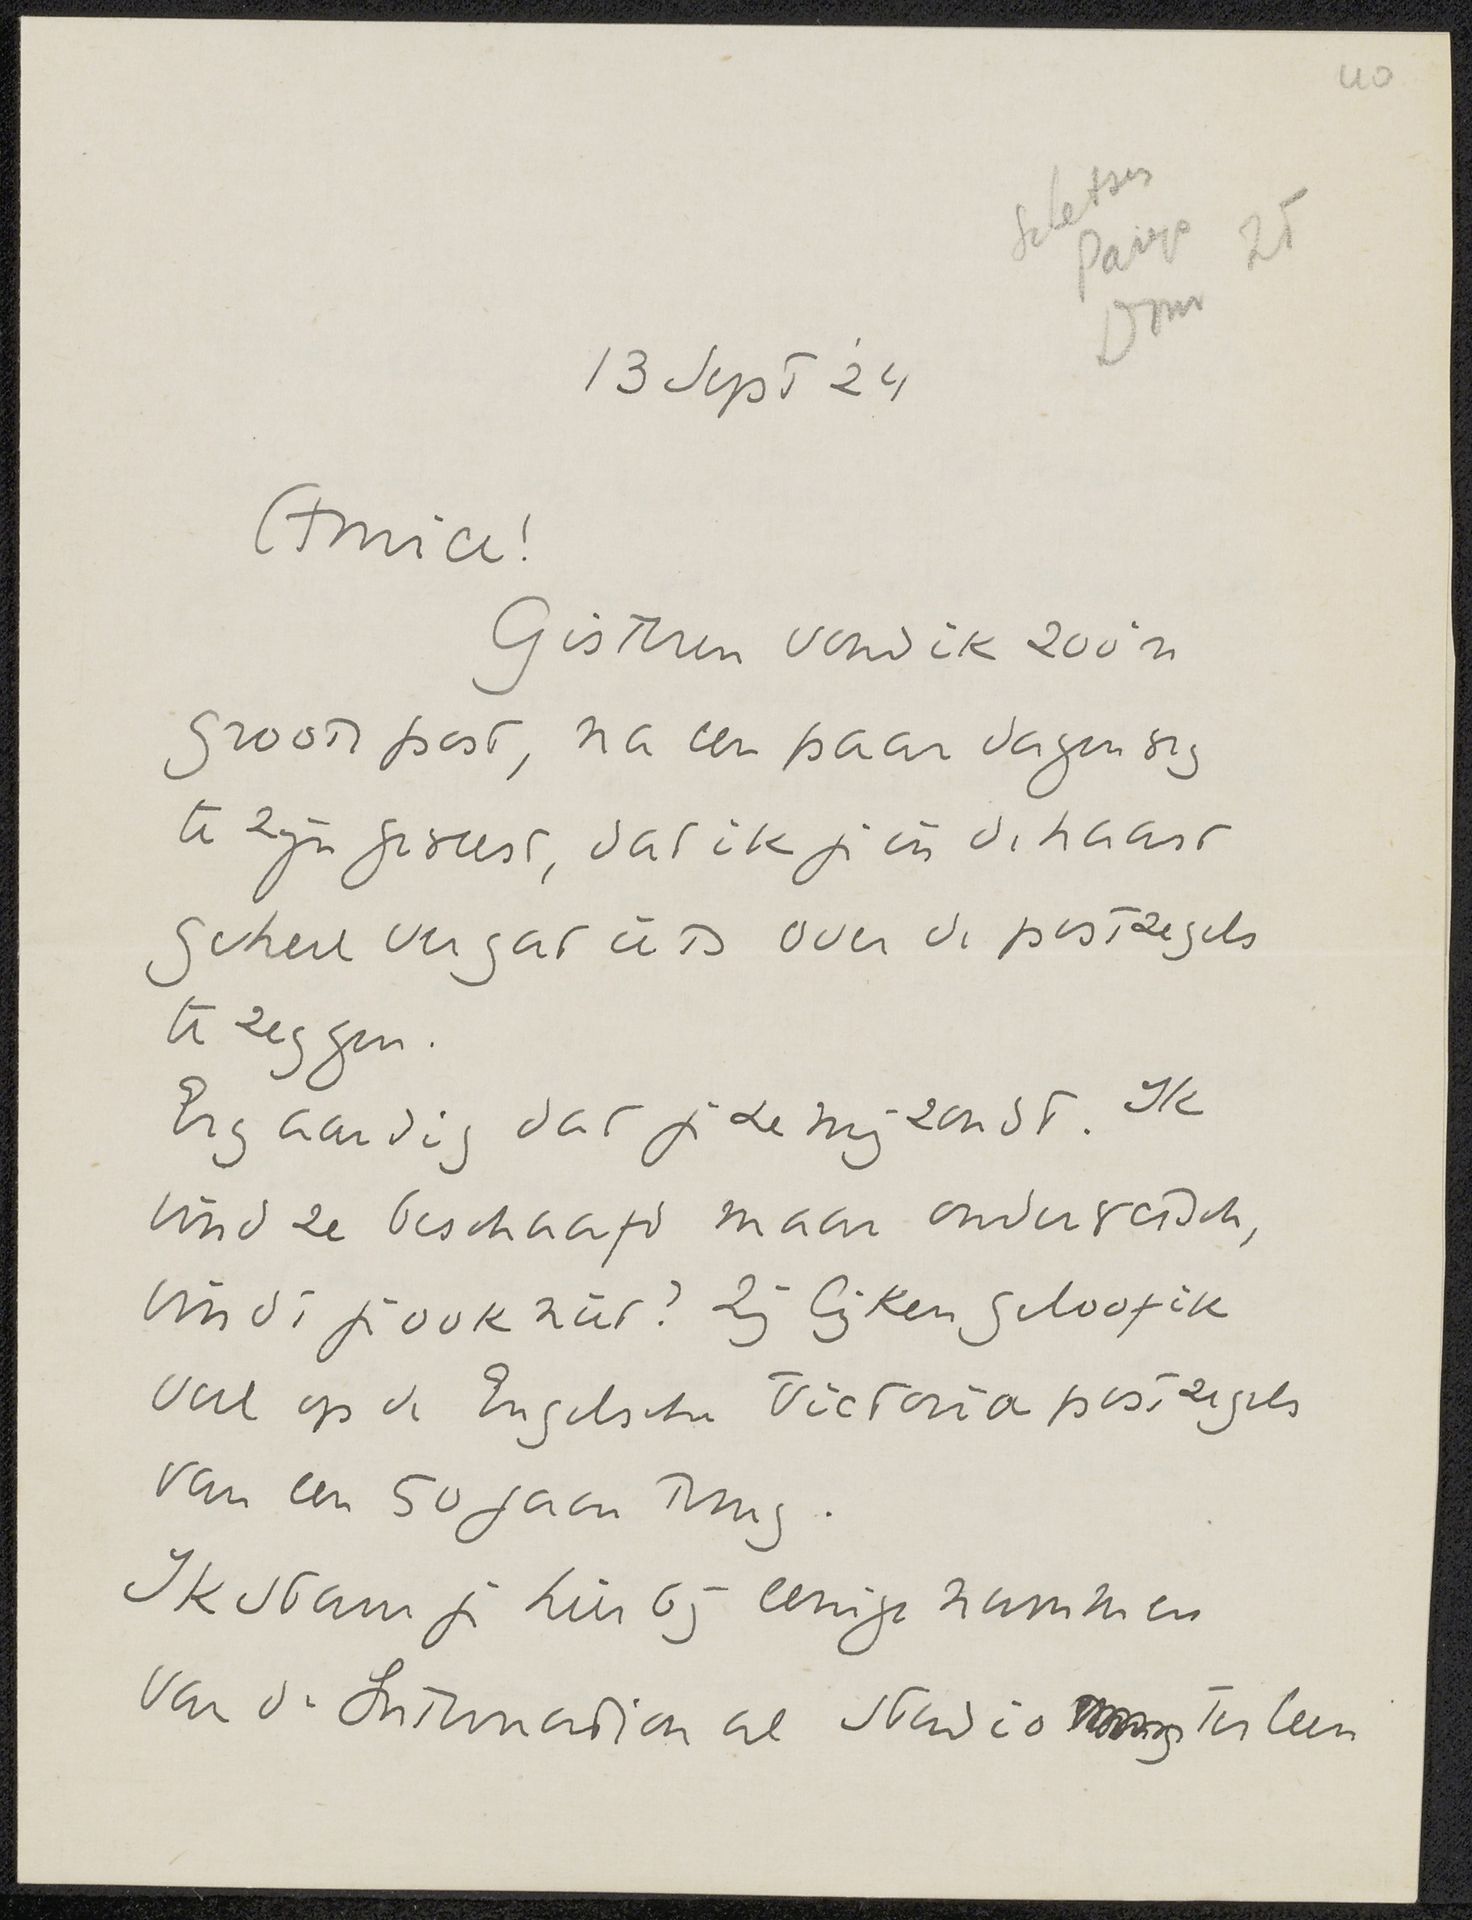 40
Parijs 25
13 Sept '24
Amice!
Gisteren vond ik zoo'n
groote post, na een paar dagen weg
te zijn geweest, dat ik je in de haast
geheel vergat iets over de postzegels
te zeggen.
Erg aardig dat je ze mij zondt. Ik
vind ze beschaafd maar ondersch,
vindt je ook niet? Zij lijken geloof ik
veel op de Engelsche Victoria postzegels
van een 50 jaar terug.
Ik stuur je hierbij eenige nummers
van de International Studio ter leen